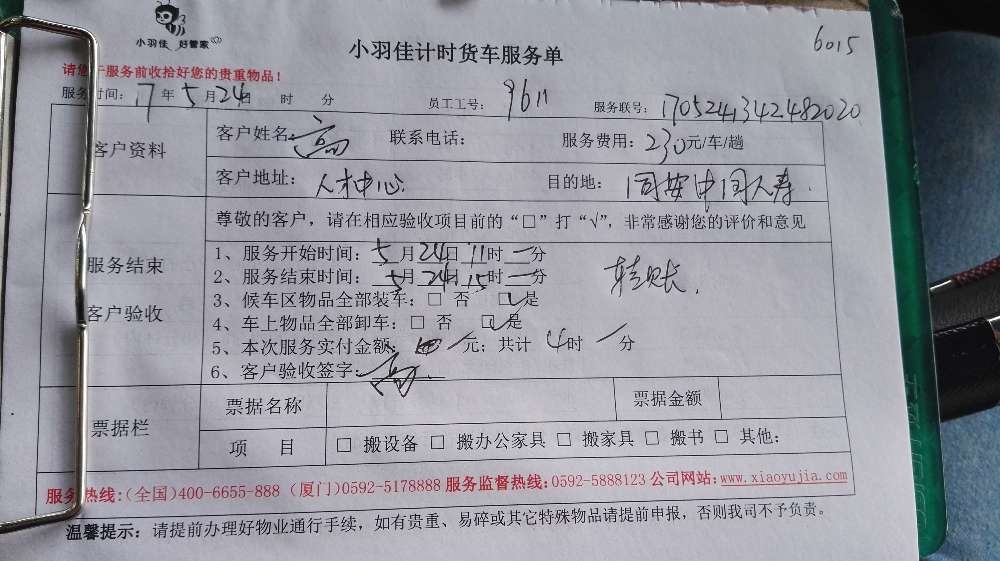 小羽佳 好管家
小羽佳计时货车服务单
6015
请您于服务前收拾好您的贵重物品！
服务时间：17年5月24日 时 分 员工工号：9611 服务联号：170524134248 2020
客户资料
客户姓名：高 联系电话： 服务费用：230元/车/趟
客户地址：人才中心 目的地：同安中国人寿
服务结束
客户验收
尊敬的客户，请在相应验收项目前的“□”打“√”，非常感谢您的评价和意见
1、服务开始时间：5月24日11时一分
2、服务结束时间：5月24日15时一分
转账
3、候车区物品全部装车：□ 否 □√是
4、车上物品全部卸车：□ 否 □√是
5、本次服务实付金额： 元；共计 4时 一分
6、客户验收签字：高
票据栏
票据名称 票据金额
项 目 □ 搬设备 □ 搬办公家具 □ 搬家具 □ 搬书 □ 其他：
服务热线：(全国)400-6655-888 (厦门)0592-5178888 服务监督热线：0592-5888123 公司网站：www.xiaoyujia.com
温馨提示：请提前办理好物业通行手续，如有贵重、易碎或其它特殊物品请提前申报，否则我司不予负责。